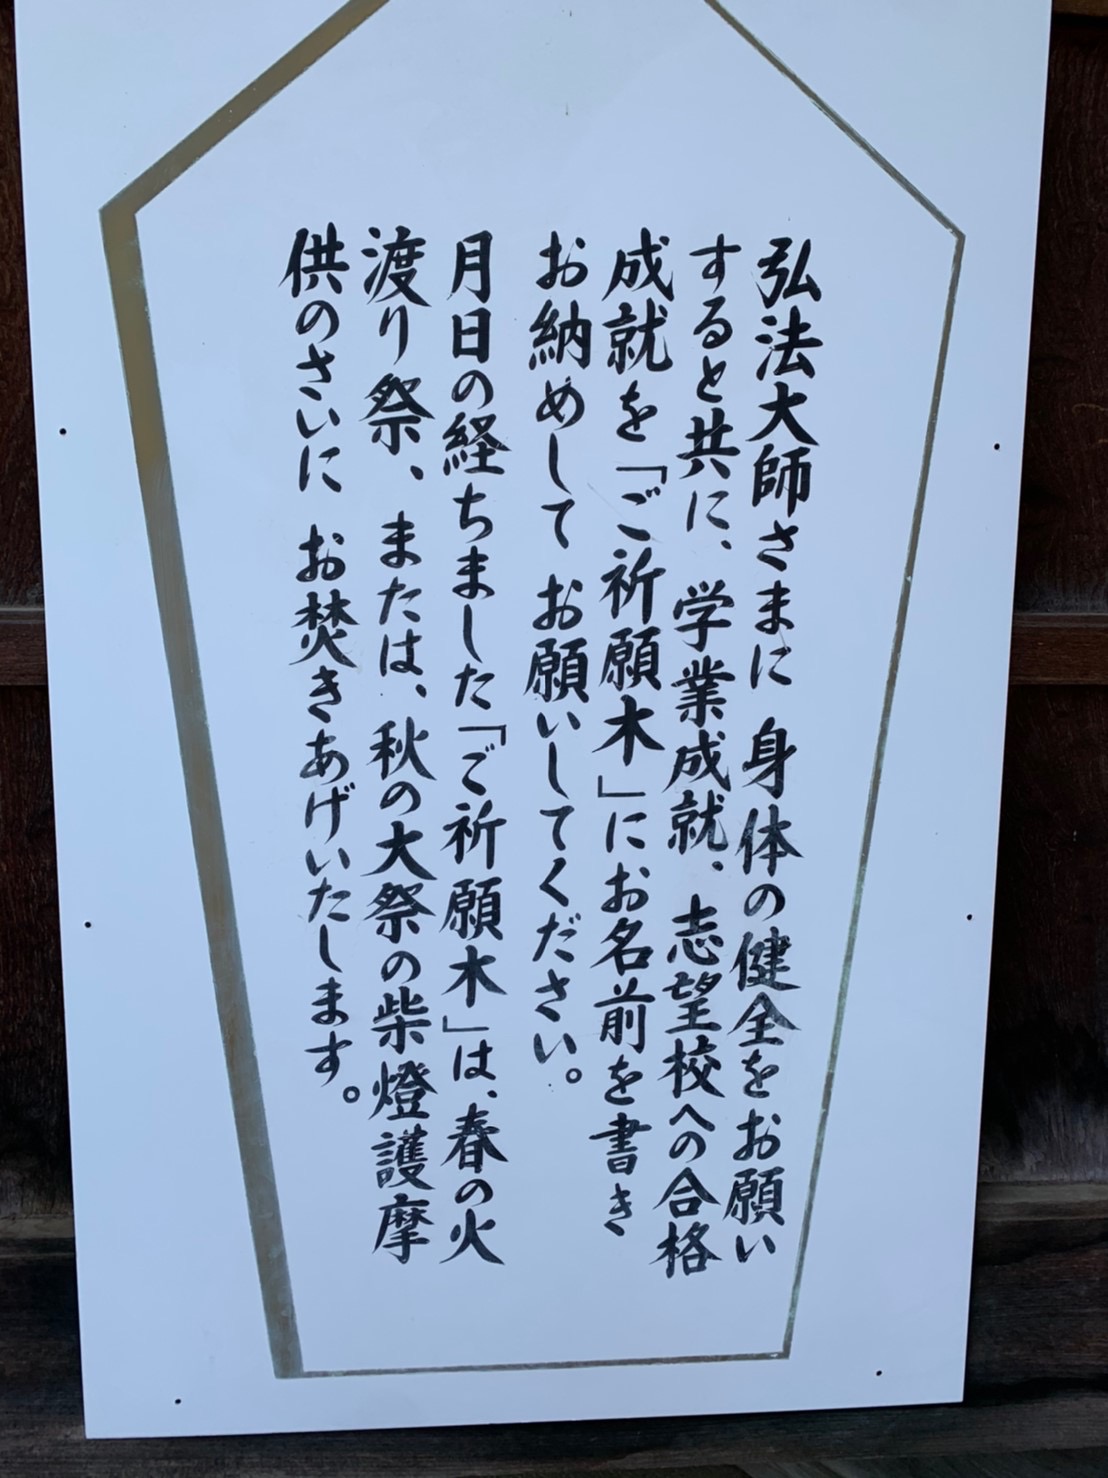 弘法大師さまに 身体の健全をお願い
すると共に、学業成就、志望校への合格
成就を「ご祈願木」にお名前を書き
お納めして お願いしてください。
月日の経ちました「ご祈願木」は、春の火
渡り祭、または、秋の大祭の柴燈護摩
供のさいに お焚きあげいたします。